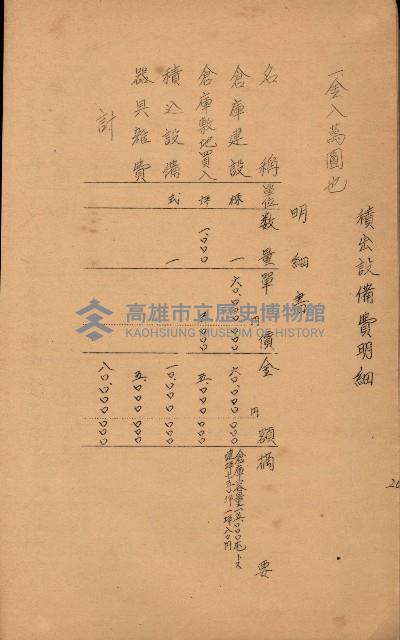 積出設備費明細
一金八萬圓也
明細書
名稱 單位 數量 單價 金額 摘要
倉庫建設 棟 一 六〇,〇〇〇円〇〇〇 六〇,〇〇〇円〇〇〇 倉庫容量一五,〇〇〇瓲トス
建坪七五〇坪 一坪八〇円
倉庫敷地買入 坪 一,〇〇〇 五〇〇〇 五,〇〇〇〇〇〇
積込設備 式 一 一〇,〇〇〇〇〇〇
器具雜費 五,〇〇〇〇〇〇
計 八〇,〇〇〇〇〇〇
高雄市立歷史博物館
KAOHSIUNG MUSEUM OF HISTORY
20